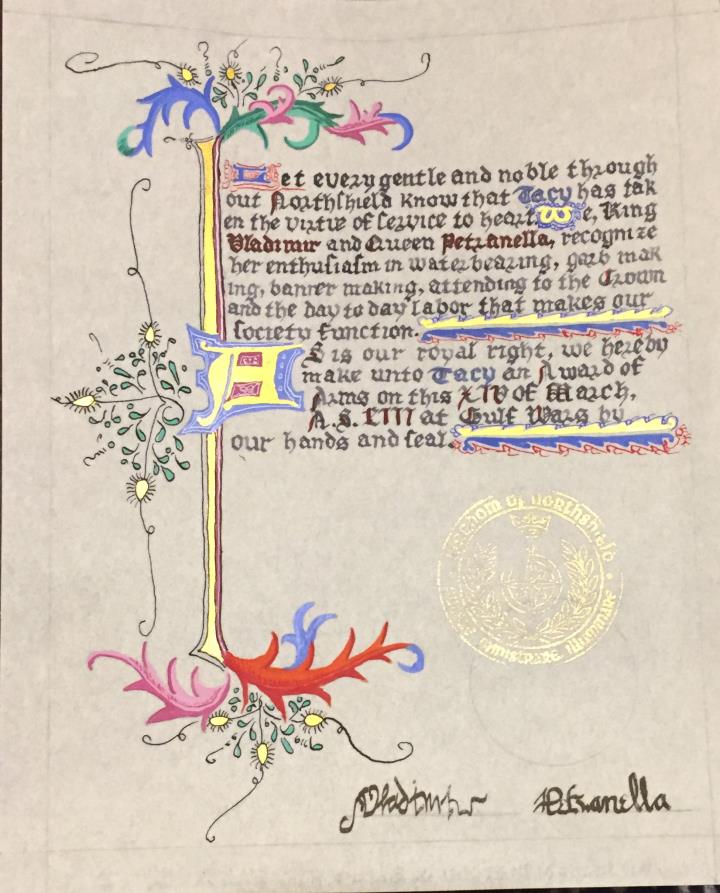 Let every gentle and noble through
out Northshield know that Tacy has tak
en the virtue of service to heart. We, King
Vladimir and Queen Petranella, recognize
her enthusiasm in waterbearing, garb mak
ing, banner making, attending to the Crown
and the day to day labor that makes our
society function.
AS is our royal right, we hereby
make unto Tacy an Award of
Arms on this XIV of March,
A.S. LIII at Gulf Wars by
our hands and seal.
of Northshield
Vladimir Petranella